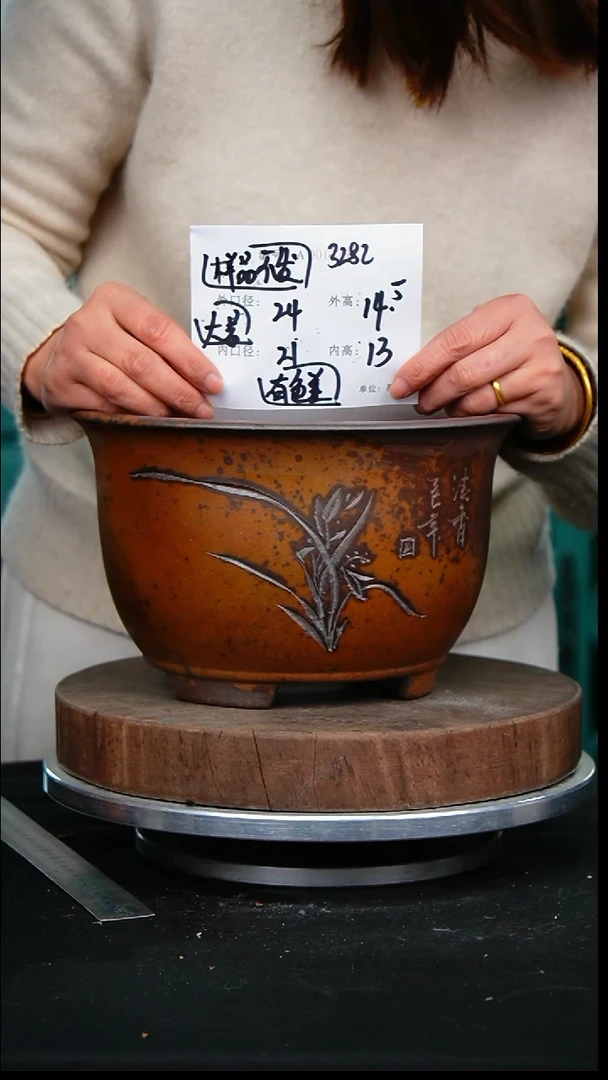 样品不发 3282
外口径： 24 外高： 14.5
大差
内口径： 21 内高： 13
有色差
单位：
清香